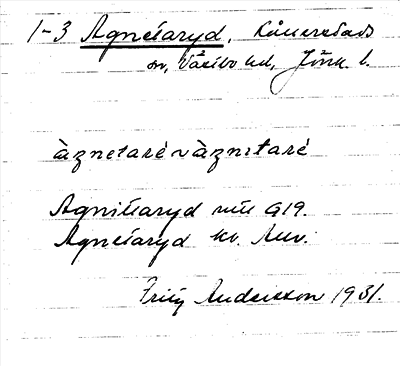 1-3 Agnetaryd, Kållerstads
sn, Västbo hd, Jönk. l.
àznetaré ~ àznıtaré
Agnittaryd mtl G19.
Agnetaryd kv. Allm.
Fritz Andersson 1931.